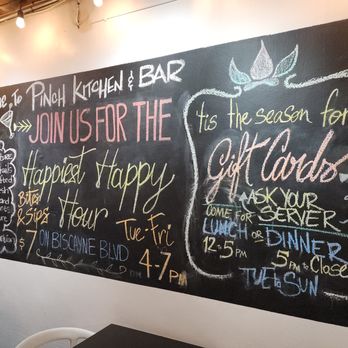 To PINCH KITCHEN & BAR
JOIN US FOR THE
Happiest Happy
Hour
Bites
& Sips
$7
ON BISCAYNE BLVD
Tue-Fri
4-7 PM
'tis the season for
Gift Cards
ASK YOUR
SERVER
COME FOR
LUNCH OR DINNER
12-5 PM
5 PM to Close
TUE to SUN